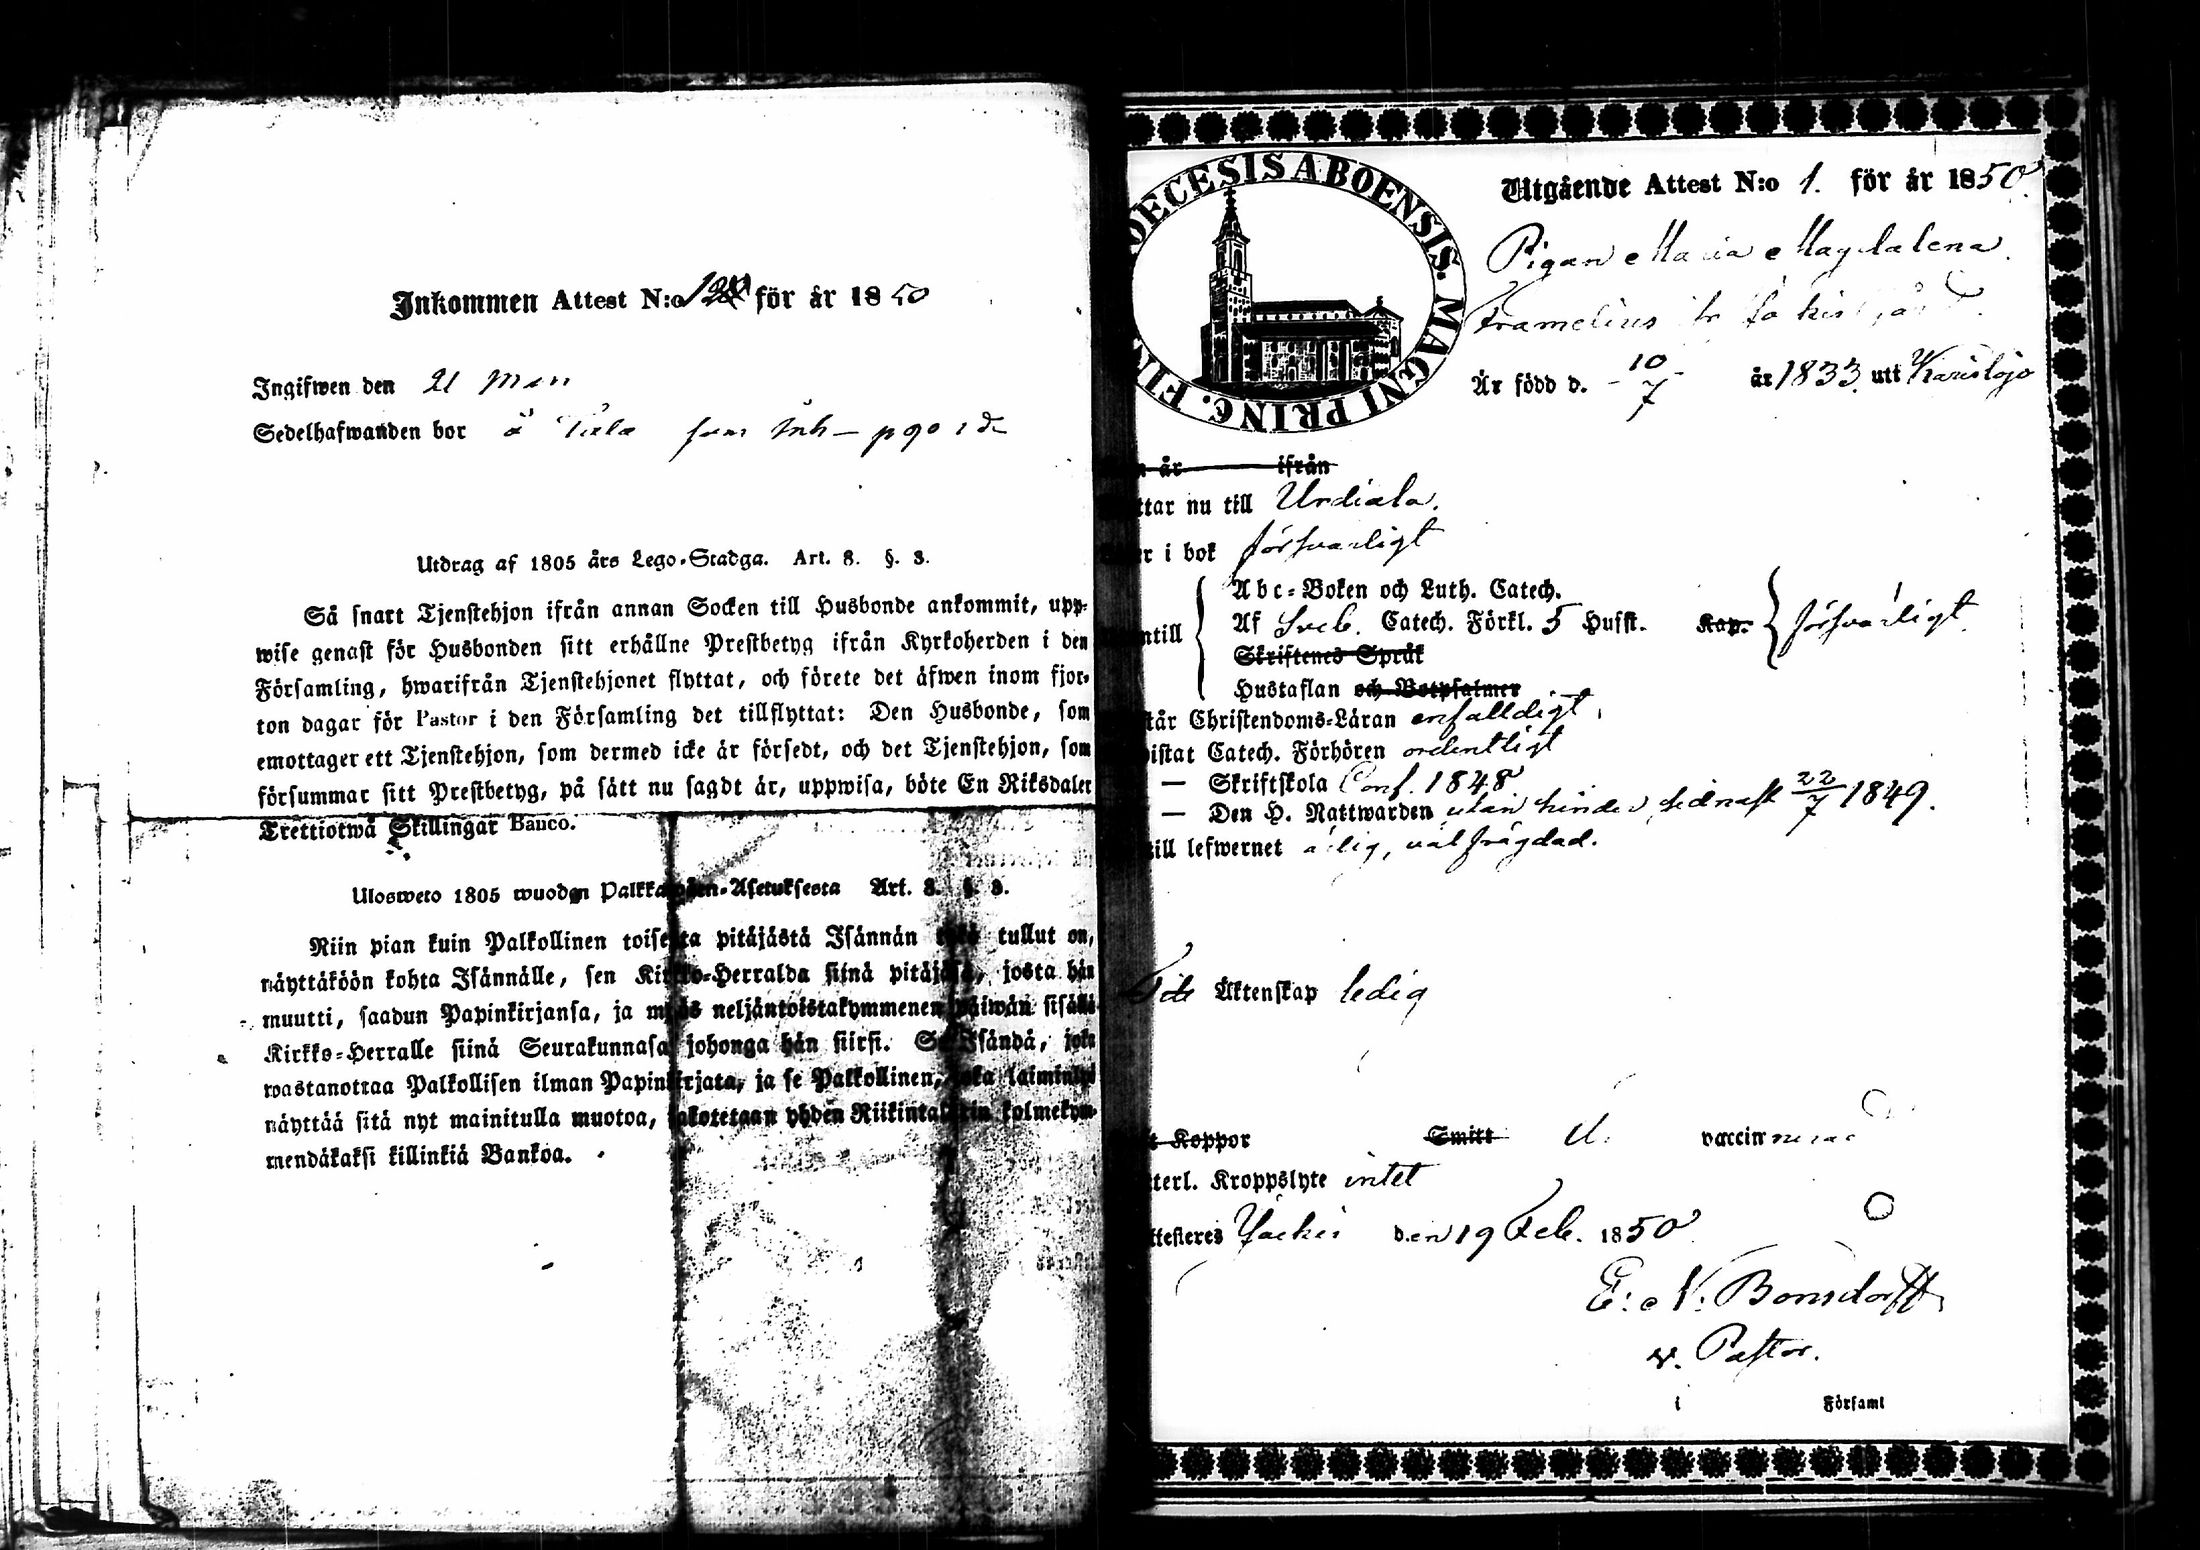 Inkommen Attest N:o för år 1850
Ingifwen den 21
Sedelhafwanden bor å som Inh
Utdrag af 1805 års Lego-Stadga. Art. 8. §. 3.
Så snart Tjenstehjon ifrån annan Socken till Husbonde ankommit, upp-
wise genast för Husbonden sitt erhållne Prestbetyg ifrån Kyrkoherden i den
Församling, hwarifrån Tjenstehjonet flyttat, och förete det äfwen inom fjor-
ton dagar för Pastor i den Församling det tillflyttat: Den Husbonde, som
emottager ett Tjenstehjon, som dermed icke är försedt, och det Tjenstehjon, som
försummar sitt Prestbetyg, på sätt nu sagdt är, uppwisa, böte En Riksdaler
Trettiotwå Skillingar Banco.
Ulosweto 1805 wuoden Palkkawäen-Asetuksesta Art. 8. §. 3.
Niin pian kuin Palkollinen toisesta pitäjästä Isännän tykö tullut on,
näyttäköön kohta Isännälle, sen Kirkko-Herralda siinä pitäjäsä, josta hän
muutti, saadun Papinkirjansa, ja myös neljäntoistakymmenen päiwän sisällä
Kirkko-Herralle siinä Seurakunnasa johonga hän siirsi. Se Isändä, joka
wastanottaa Palkollisen ilman Papinkirjata, ja se Palkollinen, joka laiminlyö
näyttää sitä nyt mainitulla muotoa, sakotetaan yhden Riikintalarin kolmekym-
mendäkaksi killinkiä Bankoa.
DECESIS ABOENSIS. MAGNI PRINC. FIN
Utgående Attest N:o 1. för år 1850.
Pigan Maria Magdalena
Framelius
Är född d. 10/7 år 1833. uti Karislojo
n år ifrån
ttar nu till Urdiala.
r i bok försvarligt
Abc-Boken och Luth. Catech.
ntill Af Sveb. Catech. Förkl. 5 Hufst. Kap. försvarligt
Skriftenes Språk
Hustaflan och Botpsalmer
tår Christendoms-Läran enfalldigt,
istat Catech. Förhören ordentligt
— Skriftskola Conf. 1848
— Den H. Nattwarden utan hinder, sednast 22/7 1849.
till lefwernet ärlig, väl frägdad.
Till Äktenskap ledig
t Koppor Smitt vaccinerad
terl. Kroppslyte intet
ttesteres den 19 Feb. 1850
E: N: Bonsdorff
v. Pastor.
i Församl